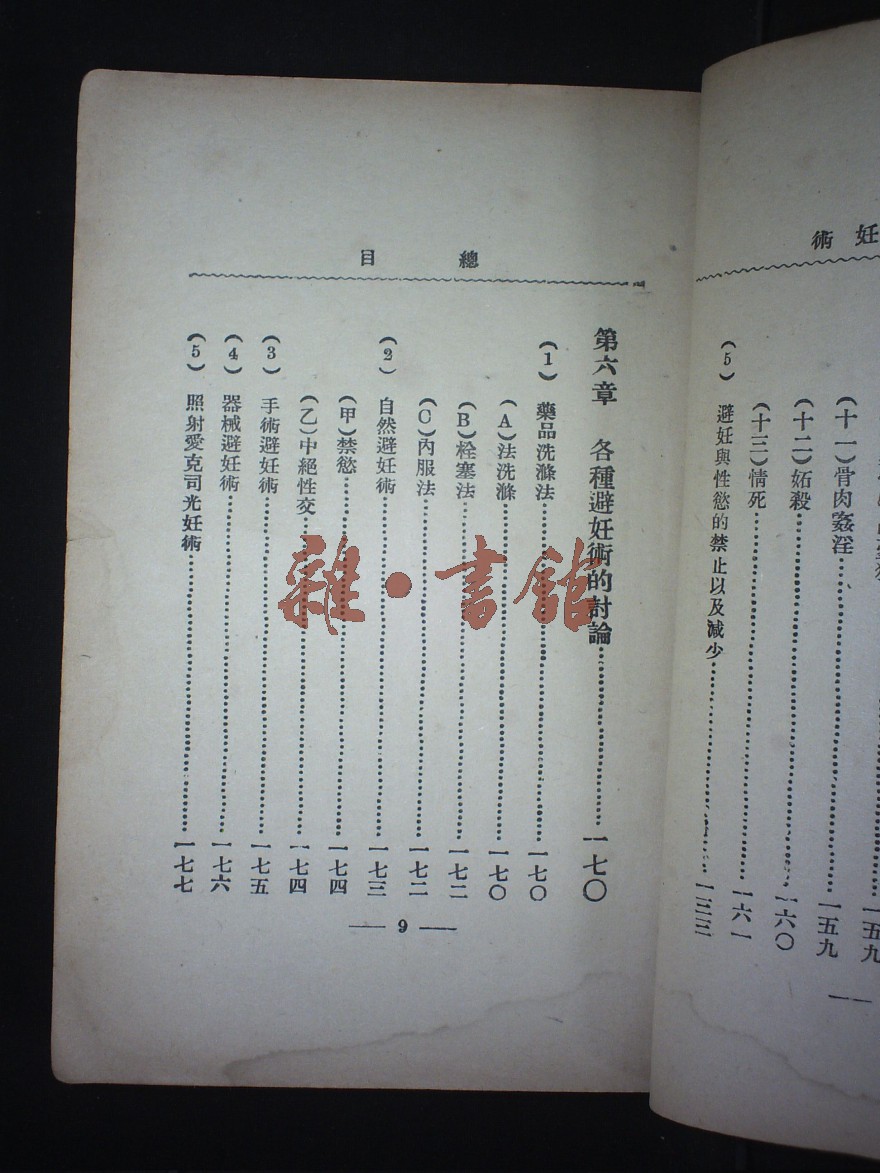 妊術
一五九
(十一)骨肉姦淫……一五九
(十二)妬殺……一六〇
(十三)情死……一六一
(5) 避妊與性慾的禁止以及減少……一三三
總目
第六章 各種避妊術的討論……一七〇
(1) 藥品洗滌法……一七〇
(A)法洗滌……一七〇
(B)栓塞法……一七二
(C)內服法……一七二
(2) 自然避妊術……一七三
(甲)禁慾……一七四
(乙)中絕性交……一七四
(3) 手術避妊術……一七五
(4) 器械避妊術……一七六
(5) 照射愛克司光妊術……一七七
— 9 —
雜·書館